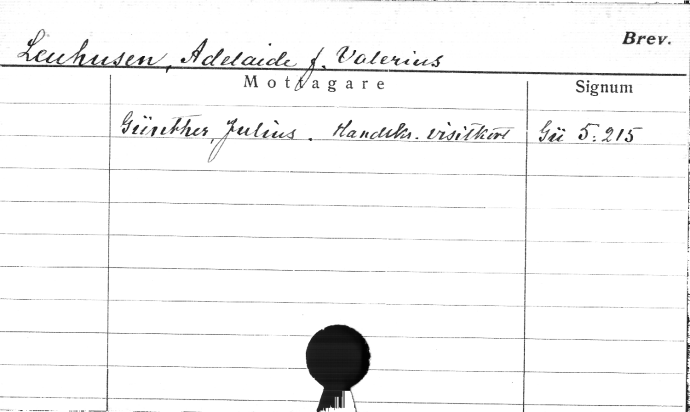 Brev.
Leuhusen, Adelaide f. Valerius
Mottagare Signum
Günther, Julius. Handskr. visitkort Gü 5:215